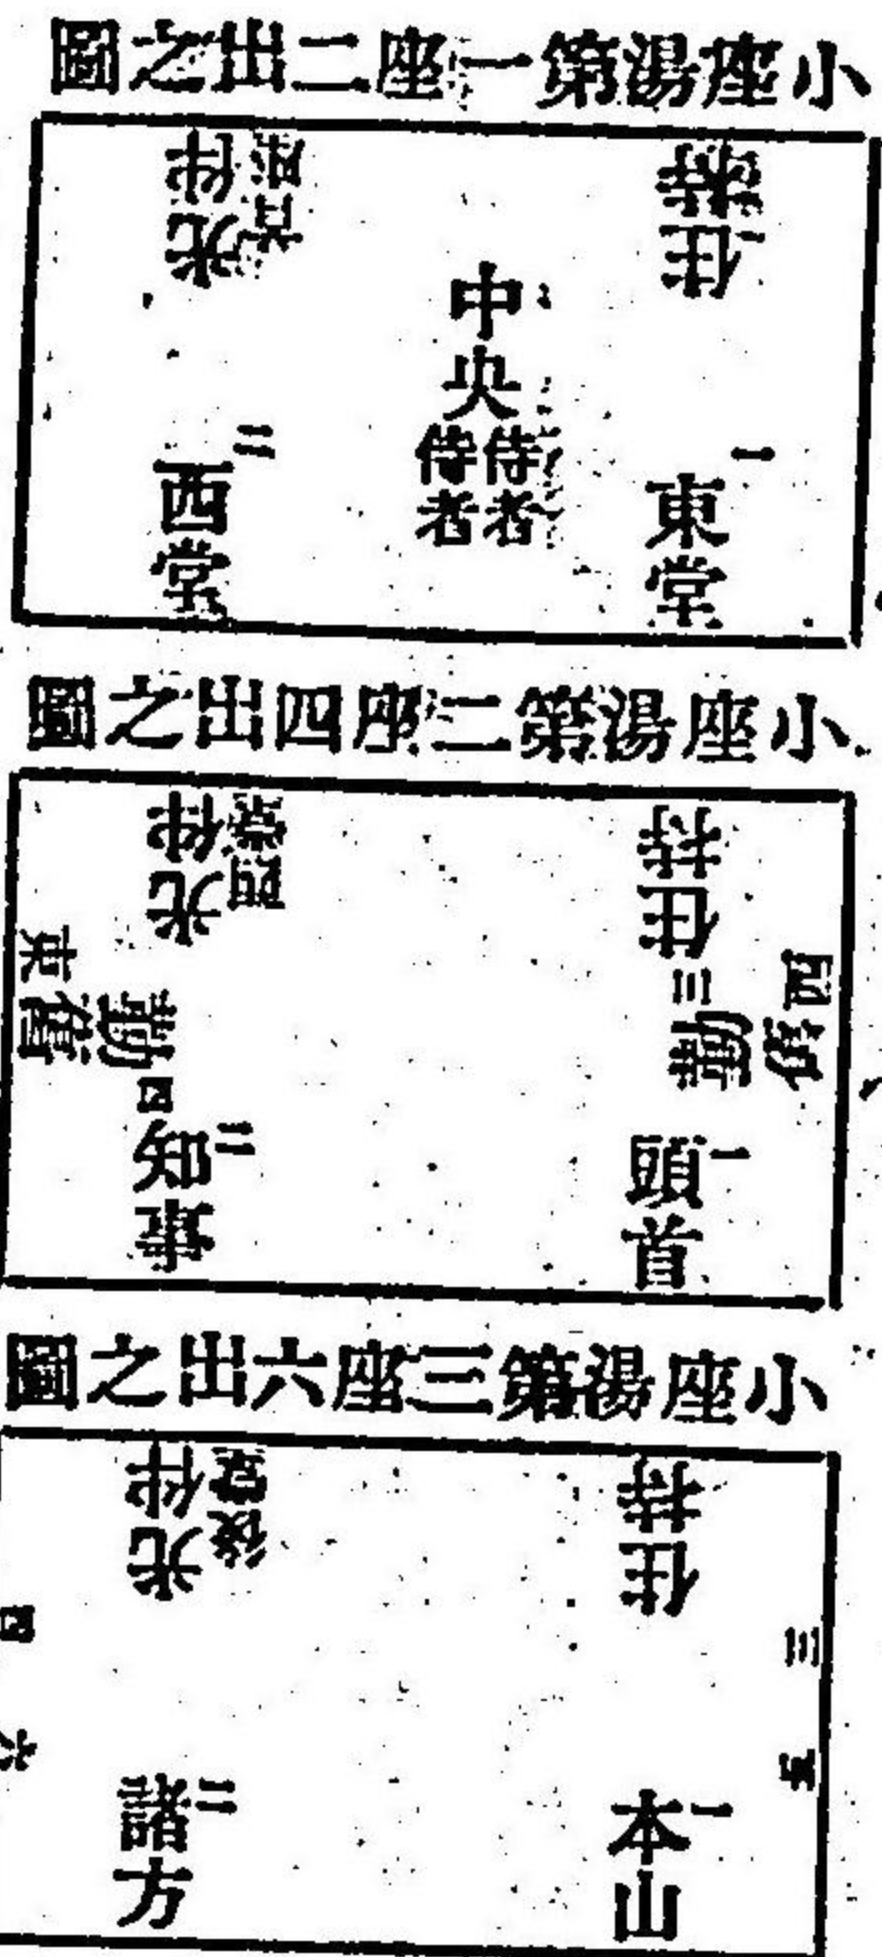 小座湯第一座二出之圖
住持
光伴
首座
中央
侍者
侍者
一
東堂
二
西堂
小座湯第二座四出之圖
住持
光伴
西堂
三
西
東
勤舊
四
一
頭首
二
小座湯第三座六出之圖
住持
光伴
後堂
三
五
四
六
一
本山
二
諸方